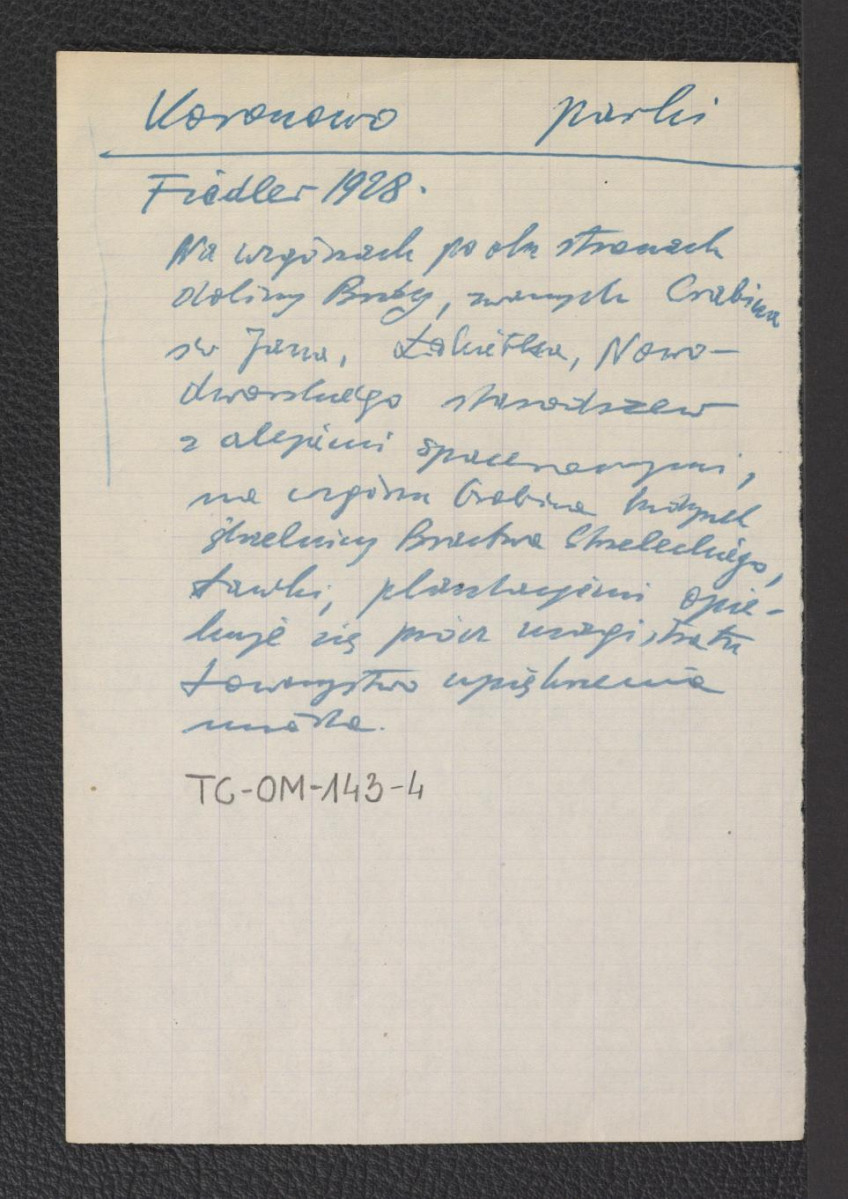 Koronowo parki
Fiedler 1928.
Na wzgórzach po obu stronach
doliny Brdy, zwanych Grabina
św Jana, Łokietka, Nowo-
dworskiego starodrzew
z alejami spacerowymi,
na wzgórzu Grabina budynek
strzelnicy Bractwa Strzeleckiego,
ławki, plantacjami opie-
kuje się prócz magistratu
towarzystwo upiększenia
miasta.
TG-OM-143-4